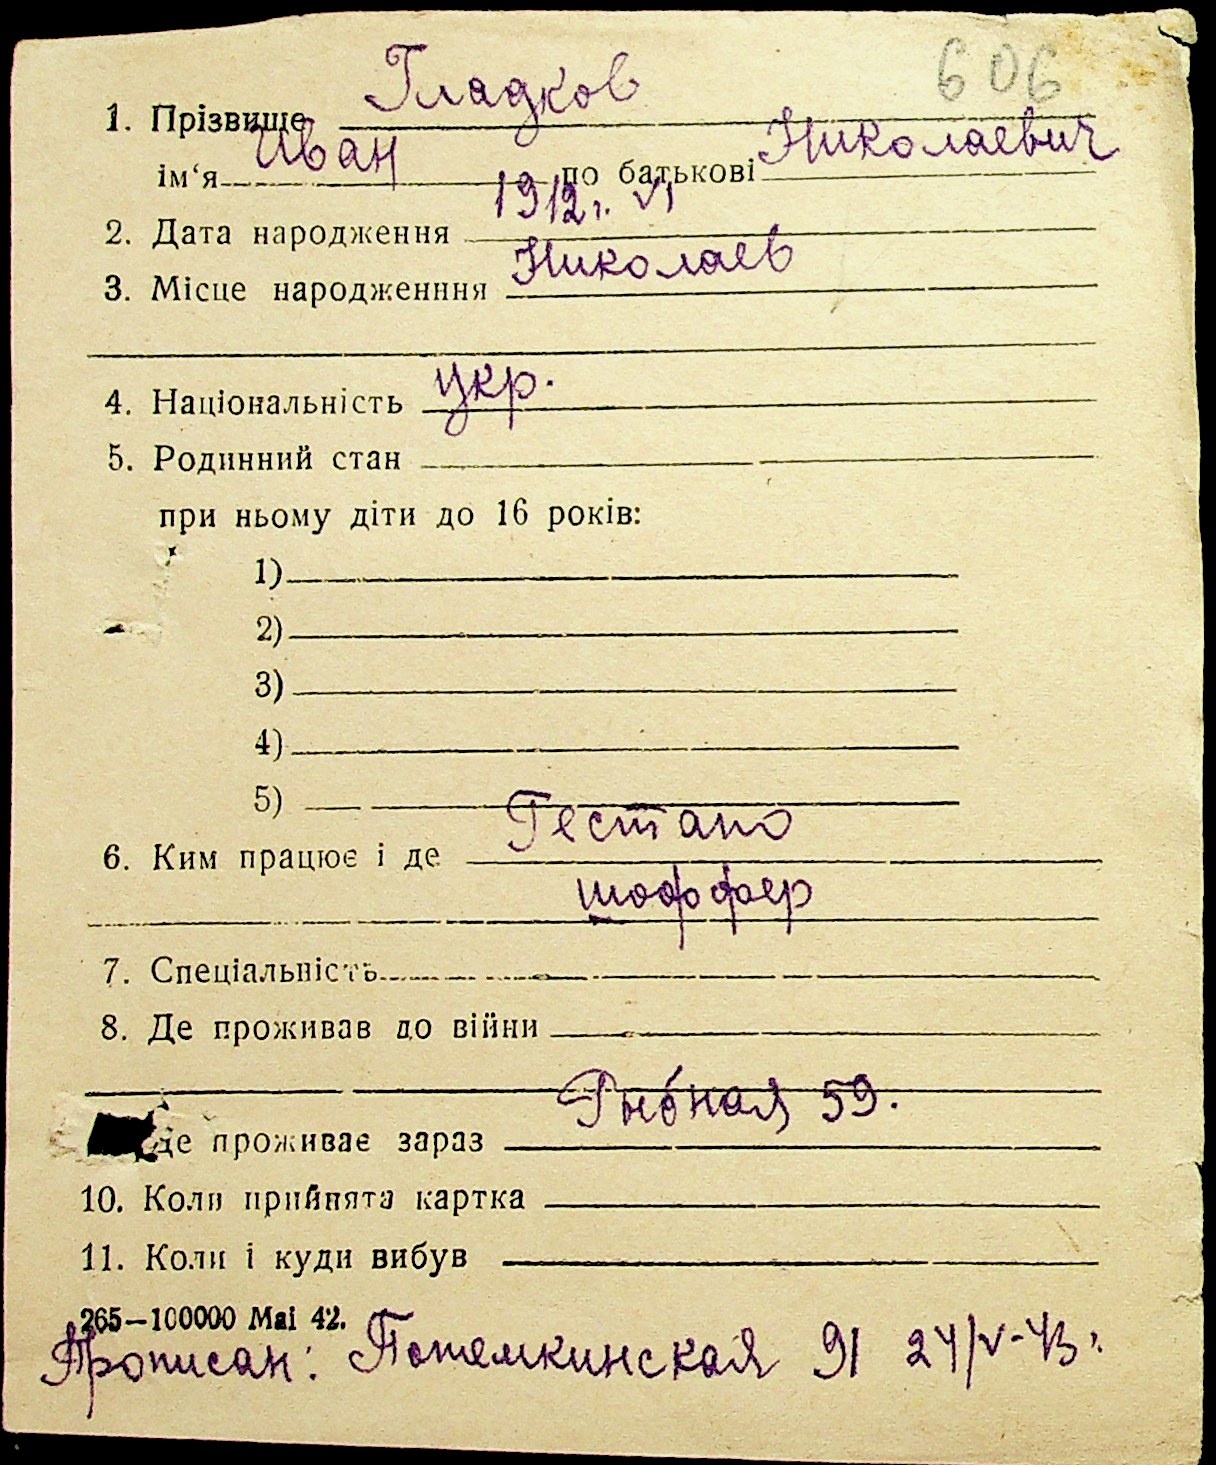 606
1. Прізвище Гладков
ім‘я Иван по батькові Николаевич
2. Дата народження 1912 г. VI
3. Місце народженння Николаев
4. Національність укр.
5. Родинний стан
при ньому діти до 16 років:
1)
2)
3)
4)
5)
6. Ким працює і де Гестапо
шоффер
7. Спеціальність
8. Де проживав до війни
Де проживає зараз Рыбная 59.
10. Коли прийнята картка
11. Коли і куди вибув
265—100000 Mai 42.
Прописан: Потемкинская 91 24/V-43 г.